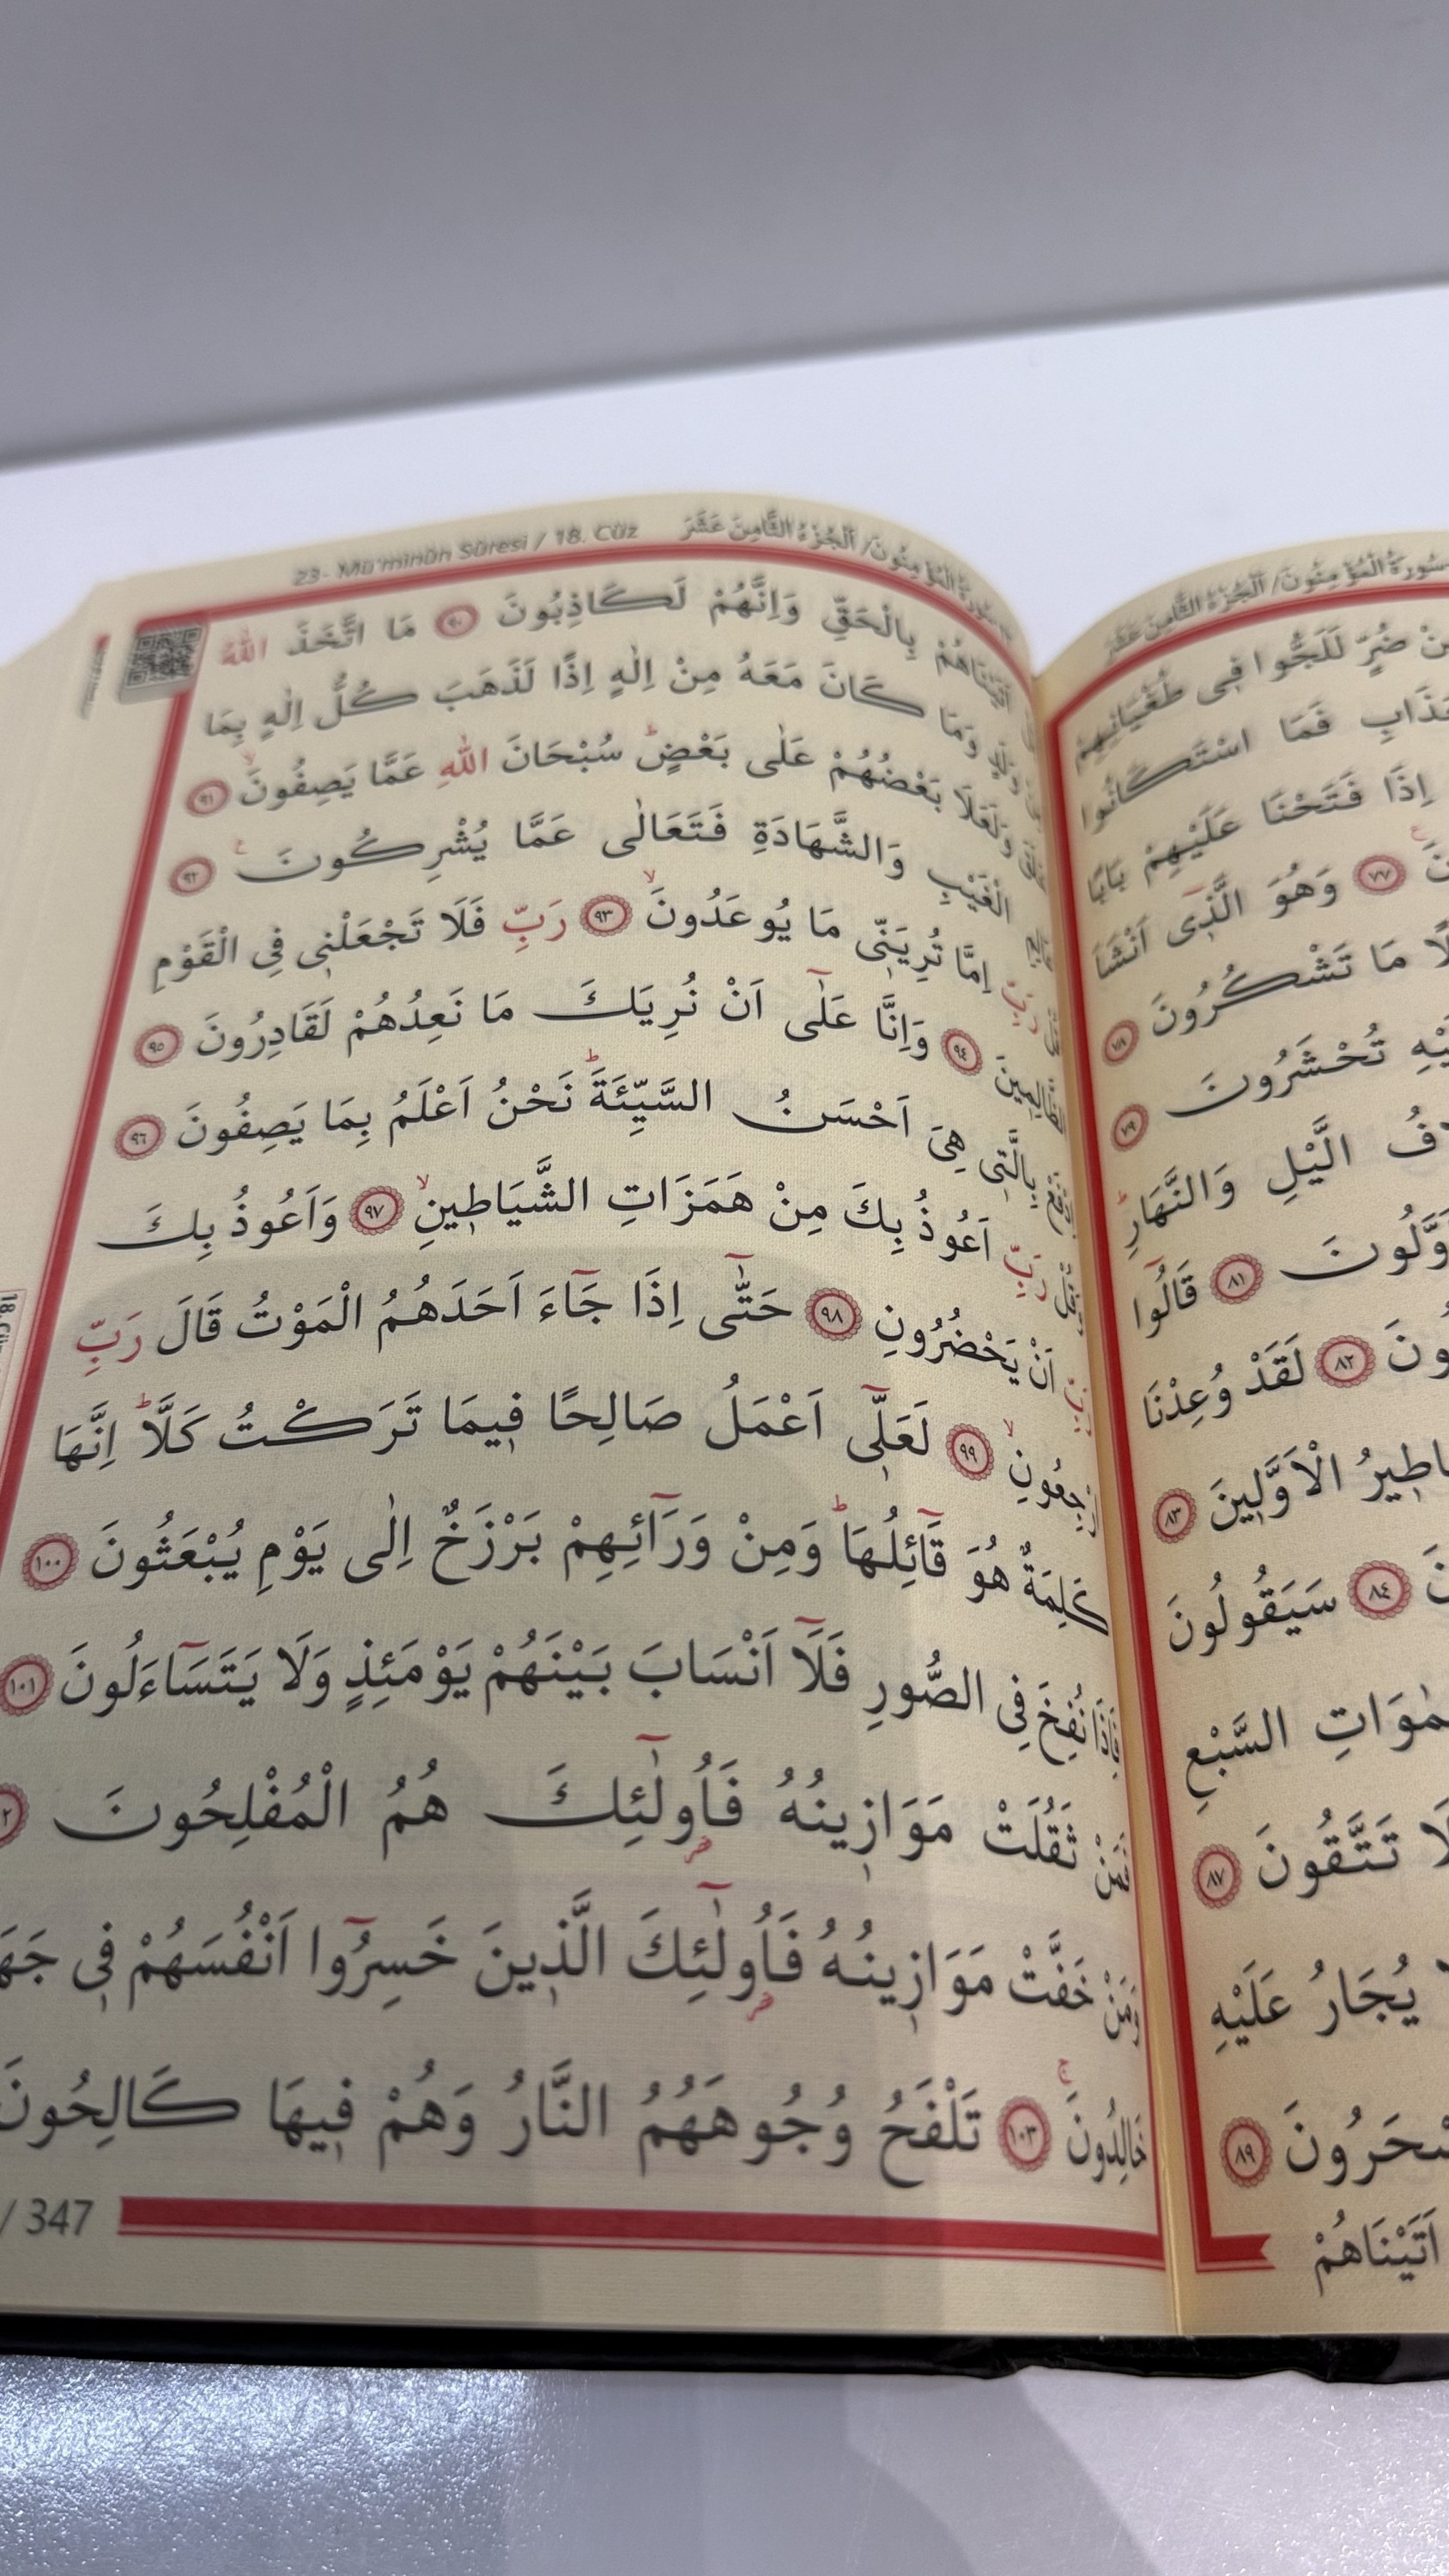 سُورَةُ الْمُؤْمِنُونَ / اَلْجُزْءُ الثَّامِنَ عَشَرَ
مِنْ ضُرٍّ لَلَجُّوا فٖى طُغْيَانِهِمْ
فَمَا اسْتَكَانُوا
اِذَا فَتَحْنَا عَلَيْهِمْ بَابًا
٧٧ وَهُوَ الَّذٖٓى اَنْشَاَ
مَا تَشْكُرُونَ ٧٨
تُحْشَرُونَ ٧٩
الَّيْلِ وَالنَّهَارِؕ
٨١ قَالُٓوا
٨٢ لَقَدْ وُعِدْنَا
الْاَوَّلٖينَ ٨٣
٨٤ سَيَقُولُونَ
السَّبْعِ
تَتَّقُونَ ٨٧
يُجَارُ عَلَيْهِ
٨٩
اَتَيْنَاهُمْ
23- Mü'minûn Sûresi / 18. Cüz سُورَةُ الْمُؤْمِنُونَ / اَلْجُزْءُ الثَّامِنَ عَشَرَ
اَتَيْنَاهُمْ بِالْحَقِّ وَاِنَّهُمْ لَكَاذِبُونَ ٩٠ مَا اتَّخَذَ اللّٰهُ
وَمَا كَانَ مَعَهُ مِنْ اِلٰهٍ اِذًا لَذَهَبَ كُلُّ اِلٰهٍ بِمَا
وَلَعَلَا بَعْضُهُمْ عَلٰى بَعْضٍؕ سُبْحَانَ اللّٰهِ عَمَّا يَصِفُونَۙ ٩١
الْغَيْبِ وَالشَّهَادَةِ فَتَعَالٰى عَمَّا يُشْرِكُونَࣖ ٩٢
رَبِّ اِمَّا تُرِيَنّٖى مَا يُوعَدُونَۙ ٩٣ رَبِّ فَلَا تَجْعَلْنٖى فِى الْقَوْمِ
الظَّالِمٖينَ ٩٤ وَاِنَّا عَلٰٓى اَنْ نُرِيَكَ مَا نَعِدُهُمْ لَقَادِرُونَ ٩٥
بِالَّتٖى هِىَ اَحْسَنُ السَّيِّئَةَؕ نَحْنُ اَعْلَمُ بِمَا يَصِفُونَ ٩٦
رَبِّ اَعُوذُ بِكَ مِنْ هَمَزَاتِ الشَّيَاطٖينِۙ ٩٧ وَاَعُوذُ بِكَ
رَبِّ اَنْ يَحْضُرُونِ ٩٨ حَتّٰٓى اِذَا جَٓاءَ اَحَدَهُمُ الْمَوْتُ قَالَ رَبِّ
ارْجِعُونِۙ ٩٩ لَعَلّٖٓى اَعْمَلُ صَالِحًا فٖيمَا تَرَكْتُ كَلَّاؕ اِنَّهَا
كَلِمَةٌ هُوَ قَٓائِلُهَاؕ وَمِنْ وَرَٓائِهِمْ بَرْزَخٌ اِلٰى يَوْمِ يُبْعَثُونَ ١٠٠
فَاِذَا نُفِخَ فِى الصُّورِ فَلَٓا اَنْسَابَ بَيْنَهُمْ يَوْمَئِذٍ وَلَا يَتَسَٓاءَلُونَ ١٠١
فَمَنْ ثَقُلَتْ مَوَازٖينُهُ فَاُو۬لٰٓئِكَ هُمُ الْمُفْلِحُونَ
وَمَنْ خَفَّتْ مَوَازٖينُهُ فَاُو۬لٰٓئِكَ الَّذٖينَ خَسِرُٓوا اَنْفُسَهُمْ فٖى
خَالِدُونَۚ ١٠٣ تَلْفَحُ وُجُوهَهُمُ النَّارُ وَهُمْ فٖيهَا كَالِحُونَ
/ 347